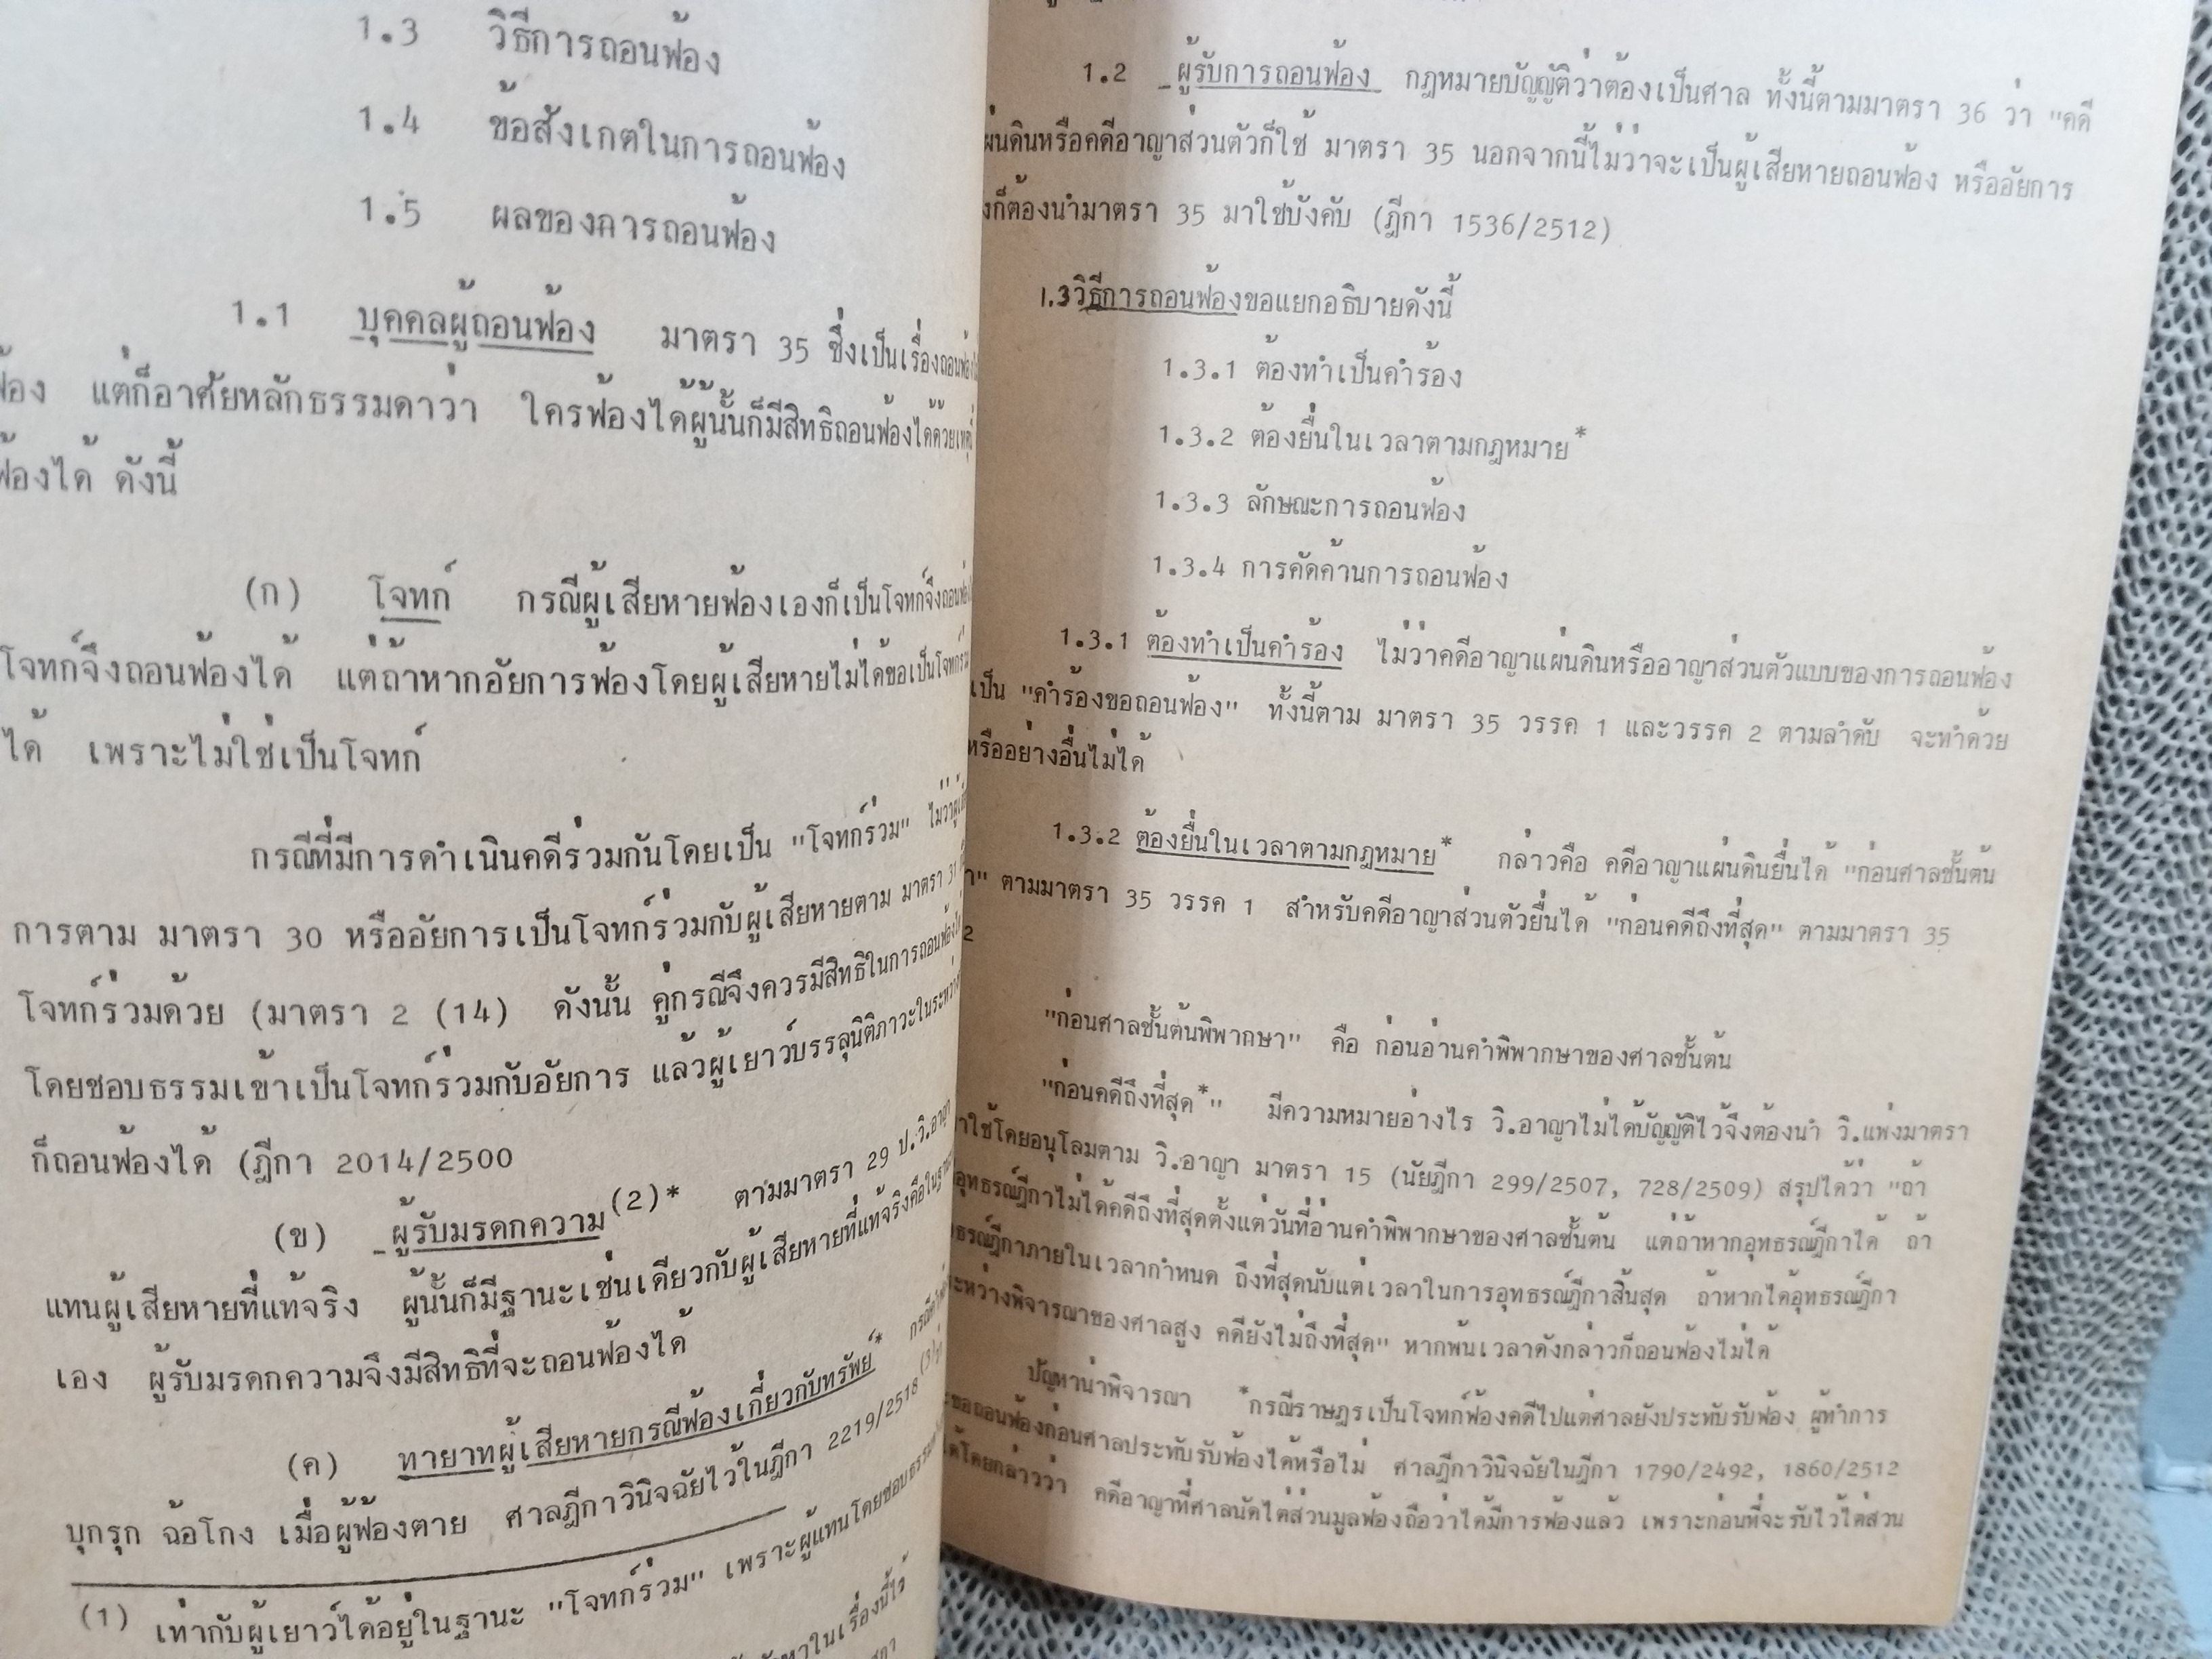 1.3 วิธีการถอนฟ้อง
1.4 ข้อสังเกตในการถอนฟ้อง
1.5 ผลของการถอนฟ้อง
1.1 บุคคลผู้ถอนฟ้อง มาตรา 35 ซึ่งเป็นเรื่องถอนฟ้อง
ฟ้อง แต่ก็อาศัยหลักธรรมดาว่า ใครฟ้องได้ผู้นั้นก็มีสิทธิถอนฟ้องได้ด้วย
ฟ้องได้ ดังนี้
(ก) โจทก์ กรณีผู้เสียหายฟ้องเองก็เป็นโจทก์จึงถอนฟ้อง
โจทก์จึงถอนฟ้องได้ แต่ถ้าหากอัยการฟ้องโดยผู้เสียหายไม่ได้ขอเป็นโจทก์ร่วม
ได้ เพราะไม่ใช่เป็นโจทก์
กรณีที่มีการดำเนินคดีร่วมกันโดยเป็น "โจทก์ร่วม" ไม่ว่า
การตาม มาตรา 30 หรืออัยการเป็นโจทก์ร่วมกับผู้เสียหายตาม มาตรา 31
โจทก์ร่วมด้วย (มาตรา 2 (14) ดังนั้น คู่กรณีจึงควรมีสิทธิในการถอนฟ้อง
โดยชอบธรรมเข้าเป็นโจทก์ร่วมกับอัยการ แล้วผู้เยาว์บรรลุนิติภาวะในระหว่าง
ก็ถอนฟ้องได้ (ฎีกา 2014/2500
(ข) ผู้รับมรดกความ(2)* ตามมาตรา 29 ป.วิ.อาญา
แทนผู้เสียหายที่แท้จริง ผู้นั้นก็มีฐานะเช่นเดียวกับผู้เสียหายที่แท้จริงคือ
เอง ผู้รับมรดกความจึงมีสิทธิที่จะถอนฟ้องได้
(ค) ทายาทผู้เสียหายกรณีฟ้องเกี่ยวกับทรัพย์*
บุกรุก ฉ้อโกง เมื่อผู้ฟ้องตาย ศาลฎีกาวินิจฉัยไว้ในฎีกา 2219/2518 (3)
(1) เท่ากับผู้เยาว์ได้อยู่ในฐานะ "โจทก์ร่วม" เพราะผู้แทนโดยชอบธรรม
ในเรื่องนี้ไว้
1.2 ผู้รับการถอนฟ้อง กฎหมายบัญญัติว่าต้องเป็นศาล ทั้งนี้ตามมาตรา 36 ว่า "คดี
ผ่นดินหรือคดีอาญาส่วนตัวก็ใช้ มาตรา 35 นอกจากนี้ไม่ว่าจะเป็นผู้เสียหายถอนฟ้อง หรืออัยการ
งก็ต้องนำมาตรา 35 มาใช้บังคับ (ฎีกา 1536/2512)
1.3วิธีการถอนฟ้องขอแยกอธิบายดังนี้
1.3.1 ต้องทำเป็นคำร้อง
1.3.2 ต้องยื่นในเวลาตามกฎหมาย*
1.3.3 ลักษณะการถอนฟ้อง
1.3.4 การคัดค้านการถอนฟ้อง
1.3.1 ต้องทำเป็นคำร้อง ไม่ว่าคดีอาญาแผ่นดินหรืออาญาส่วนตัวแบบของการถอนฟ้อง
เป็น "คำร้องขอถอนฟ้อง" ทั้งนี้ตาม มาตรา 35 วรรค 1 และวรรค 2 ตามลำดับ จะทำด้วย
หรืออย่างอื่นไม่ได้
1.3.2 ต้องยื่นในเวลาตามกฎหมาย* กล่าวคือ คดีอาญาแผ่นดินยื่นได้ "ก่อนศาลชั้นต้น
า" ตามมาตรา 35 วรรค 1 สำหรับคดีอาญาส่วนตัวยื่นได้ "ก่อนคดีถึงที่สุด" ตามมาตรา 35
2
"ก่อนศาลชั้นต้นพิพากษา" คือ ก่อนอ่านคำพิพากษาของศาลชั้นต้น
"ก่อนคดีถึงที่สุด*" มีความหมายอย่างไร วิ.อาญาไม่ได้บัญญัติไว้จึงต้องนำ วิ.แพ่งมาตรา
าใช้โดยอนุโลมตาม วิ.อาญา มาตรา 15 (นัยฎีกา 299/2507, 728/2509) สรุปได้ว่า "ถ้า
อุทธรณ์ฎีกาไม่ได้คดีถึงที่สุดตั้งแต่วันที่อ่านคำพิพากษาของศาลชั้นต้น แต่ถ้าหากอุทธรณ์ฎีกาได้ ถ้า
ธรณ์ฎีกาภายในเวลากำหนด ถึงที่สุดนับแต่เวลาในการอุทธรณ์ฎีกาสิ้นสุด ถ้าหากได้อุทธรณ์ฎีกา
ะหว่างพิจารณาของศาลสูง คดียังไม่ถึงที่สุด" หากพ้นเวลาดังกล่าวก็ถอนฟ้องไม่ได้
ปัญหาน่าพิจารณา *กรณีราษฎรเป็นโจทก์ฟ้องคดีไปแต่ศาลยังประทับรับฟ้อง ผู้ทำการ
ะขอถอนฟ้องก่อนศาลประทับรับฟ้องได้หรือไม่ ศาลฎีกาวินิจฉัยในฎีกา 1790/2492, 1860/2512
ได้โดยกล่าวว่า คดีอาญาที่ศาลนัดไต่ส่วนมูลฟ้องถือว่าได้มีการฟ้องแล้ว เพราะก่อนที่จะรับไว้ไต่สวน